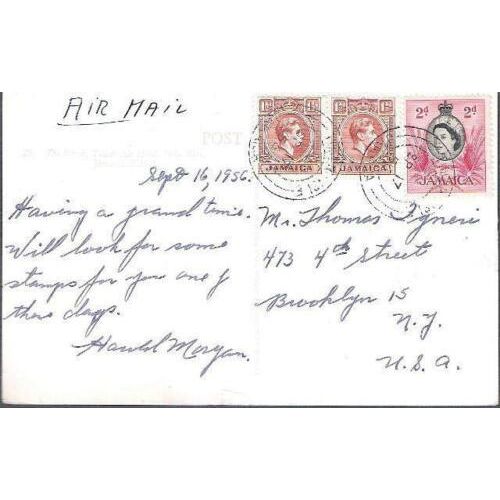 AIR MAIL
POST
1½ᵈ
JAMAICA
1½ᵈ
JAMAICA
2ᵈ 2ᵈ
JAMAICA
Sept 16, 1956.
Having a grand time.
Will look for some
stamps for you one of
these days.
Harold Morgan.
Mr. Thomas Igneri
473 4th Street
Brooklyn 15
N.Y.
U.S.A.